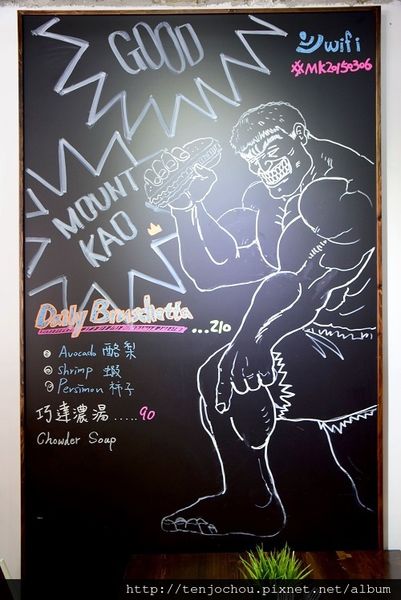 GOOD
wifi
MK20150306
MOUNT
KAO
Daily Bruschetta
...210
Avocado 酪梨
Shrimp 蝦
Persimon 柿子
巧達濃湯.....90
Chowder Soup
http://tenjochou.pixnet.net/album